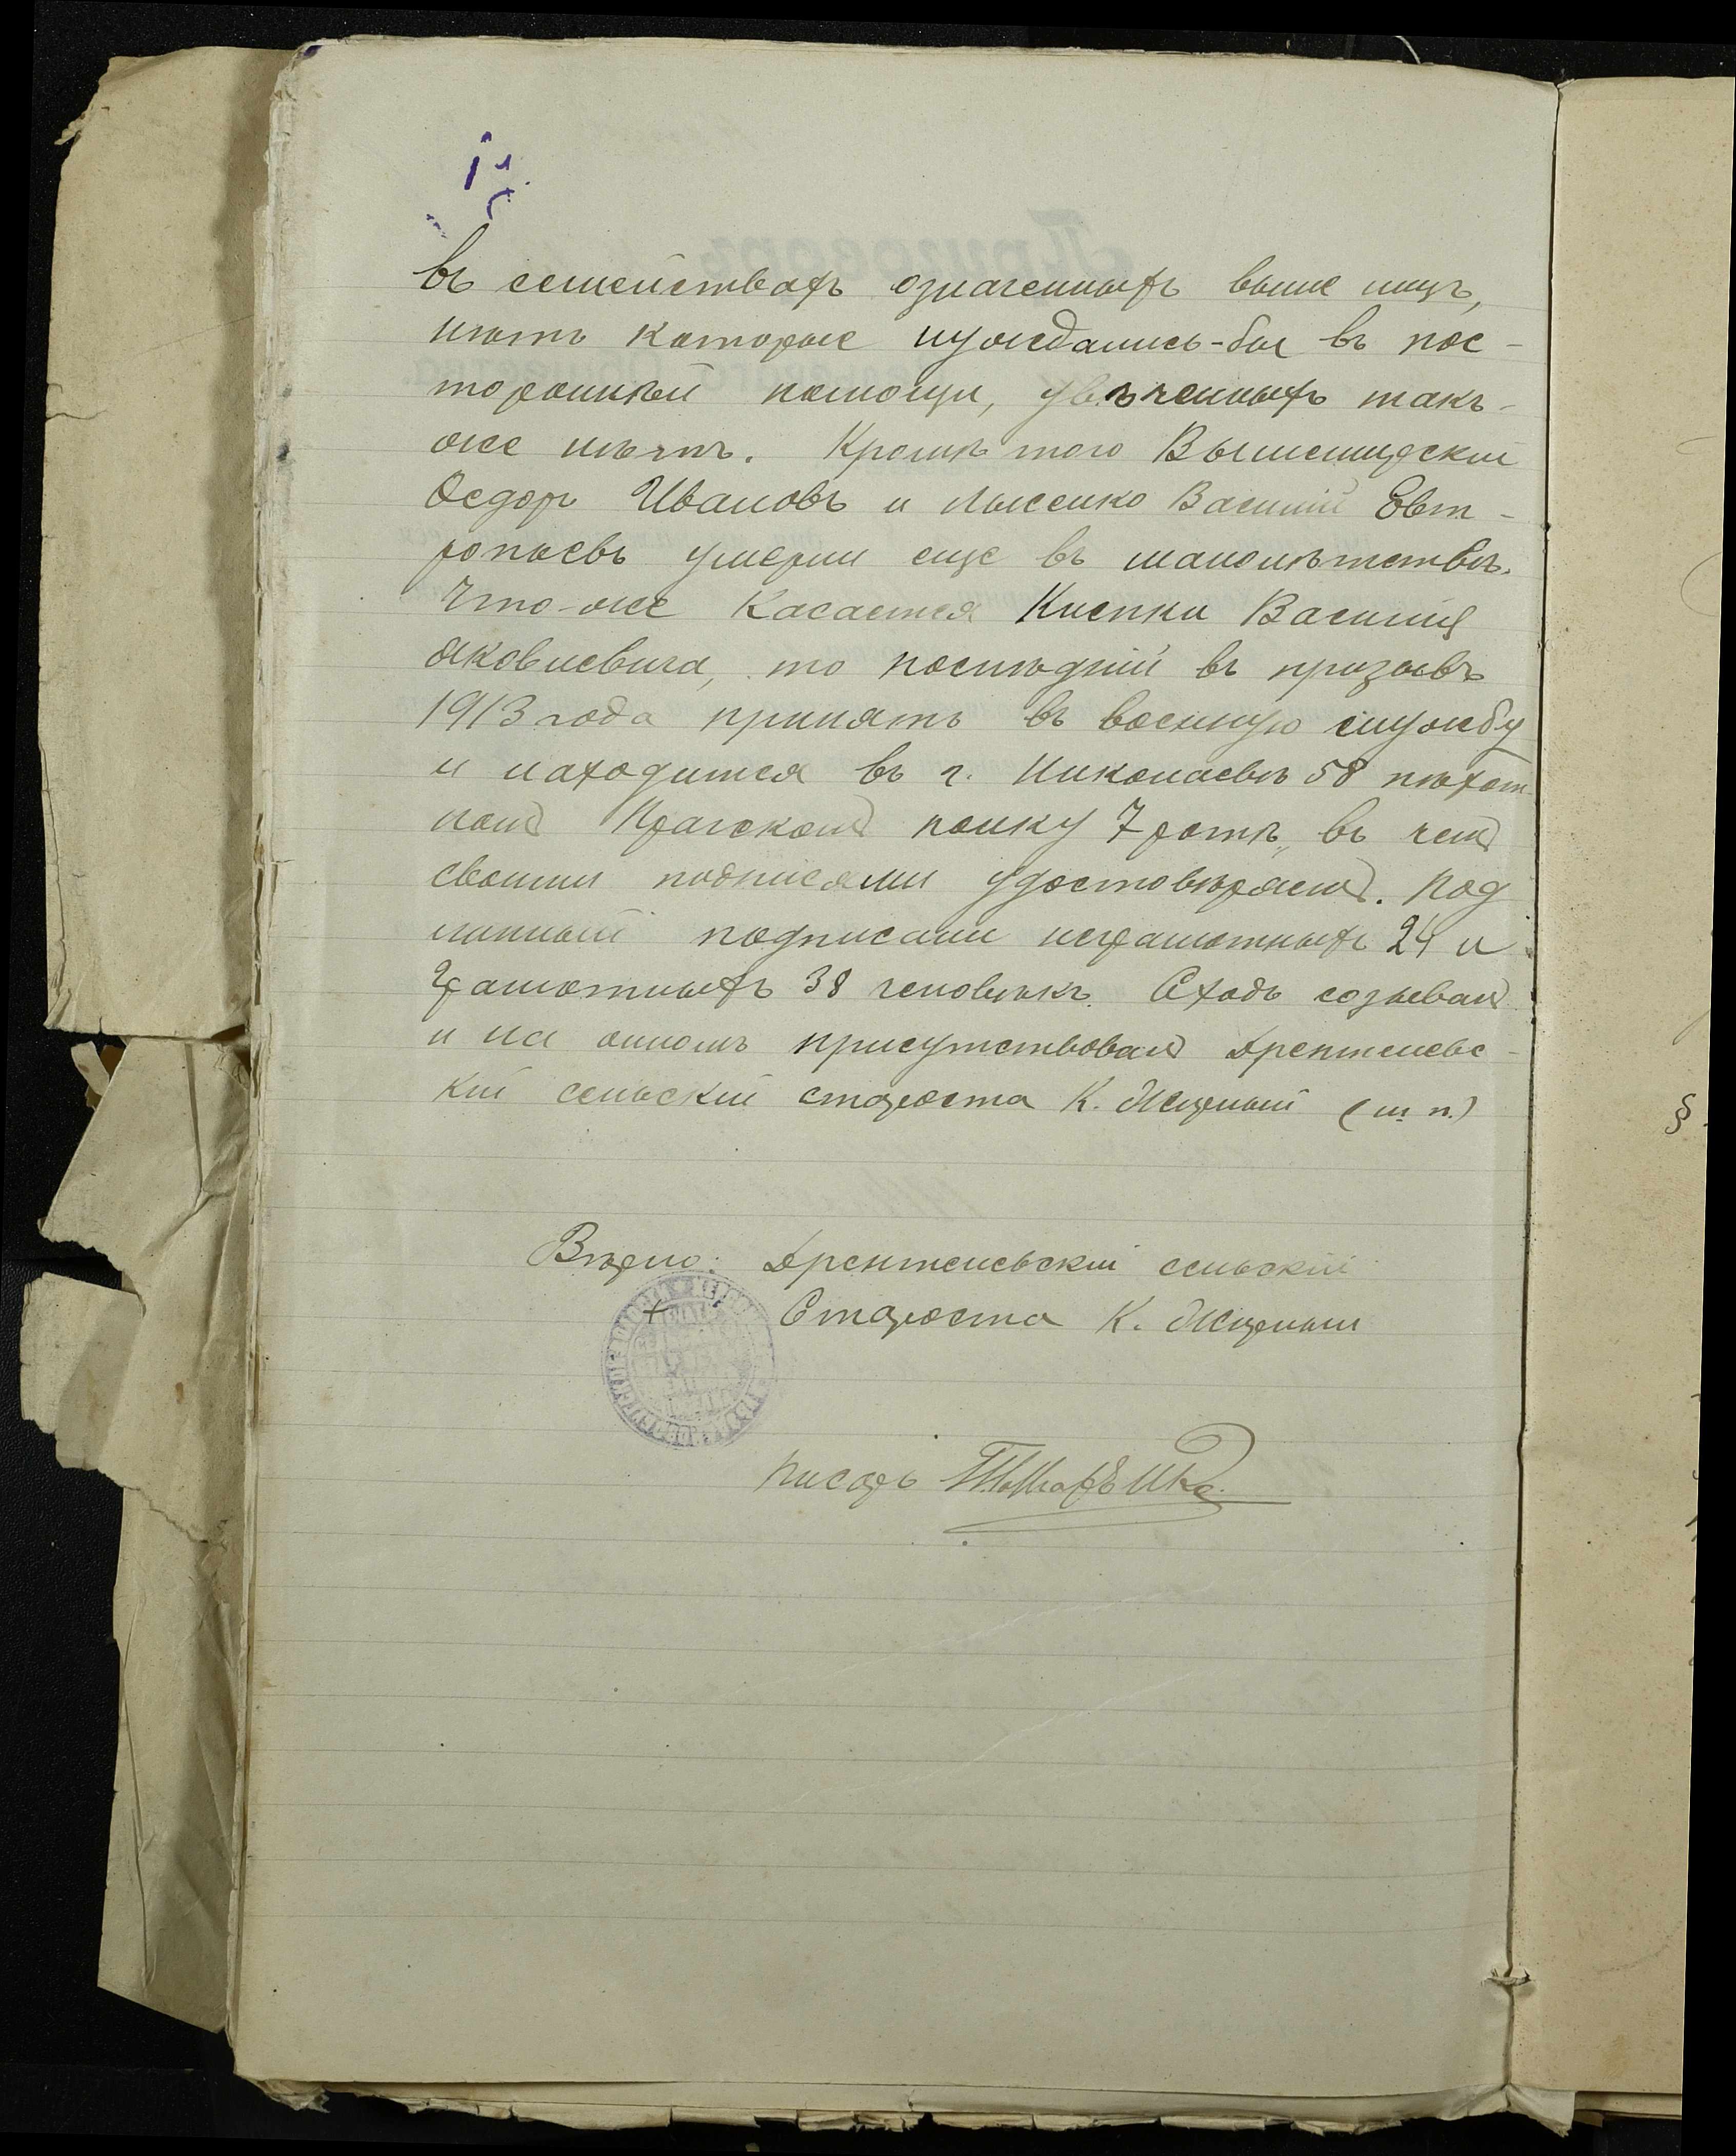 въ семействахъ означенныхъ выше лицъ,
нѣтъ которые нуждались-бы въ пос-
торонней помощи, увѣченныхъ такъ-
же нѣтъ. Кромѣ того Вышемирскій
Федоръ Ивановъ и Лысенко Василій Евт-
ропьевъ умерли еще въ малолѣтствѣ.
Что-же касается Киепки Василія
Яковлевича, то послѣдній въ призывъ
1913 года принятъ въ военную службу
и находится въ г. Николаевѣ 58 пѣхот-
номъ Прагскомъ полку 7 ротѣ, въ чемъ
своими подписями удостовѣряемъ. Под
линный подписали неграмотныхъ 24 и
грамотныхъ 38 человѣкъ. Сходъ созывалъ
и на ономъ присутствовалъ Дрентелевс-
кій сельскій староста К. (м. п.)
Вѣрно: Дрентельскій сельскій
Староста К.
Писарь